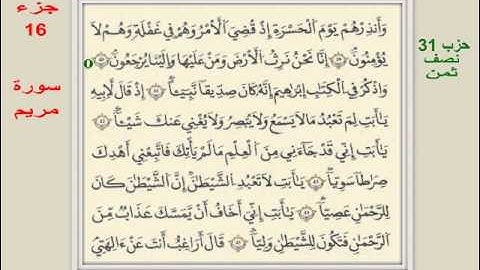 جزء
16
سورة
مريم
حزب 31
نصف
ثمن
وَأَنذِرْهُمْ يَوْمَ الْحَسْرَةِ إِذْ قُضِيَ الْأَمْرُ وَهُمْ فِي غَفْلَةٍ وَهُمْ لَا
يُؤْمِنُونَ ۝ إِنَّا نَحْنُ نَرِثُ الْأَرْضَ وَمَنْ عَلَيْهَا وَإِلَيْنَا يُرْجَعُونَ ۝
وَاذْكُرْ فِي الْكِتَابِ إِبْرَاهِيمَ إِنَّهُ كَانَ صِدِّيقًا نَّبِيئًا ۝ إِذْ قَالَ لِأَبِيهِ
يَا أَبَتِ لِمَ تَعْبُدُ مَا لَا يَسْمَعُ وَلَا يُبْصِرُ وَلَا يُغْنِي عَنكَ شَيْئًا ۝
يَا أَبَتِ إِنِّي قَدْ جَاءَنِي مِنَ الْعِلْمِ مَا لَمْ يَأْتِكَ فَاتَّبِعْنِي أَهْدِكَ
صِرَاطًا سَوِيًّا ۝ يَا أَبَتِ لَا تَعْبُدِ الشَّيْطَانَ إِنَّ الشَّيْطَانَ كَانَ
لِلرَّحْمَٰنِ عَصِيًّا ۝ يَا أَبَتِ إِنِّي أَخَافُ أَن يَمَسَّكَ عَذَابٌ مِّنَ
الرَّحْمَٰنِ فَتَكُونَ لِلشَّيْطَانِ وَلِيًّا ۝ قَالَ أَرَاغِبٌ أَنتَ عَنْ آلِهَتِي